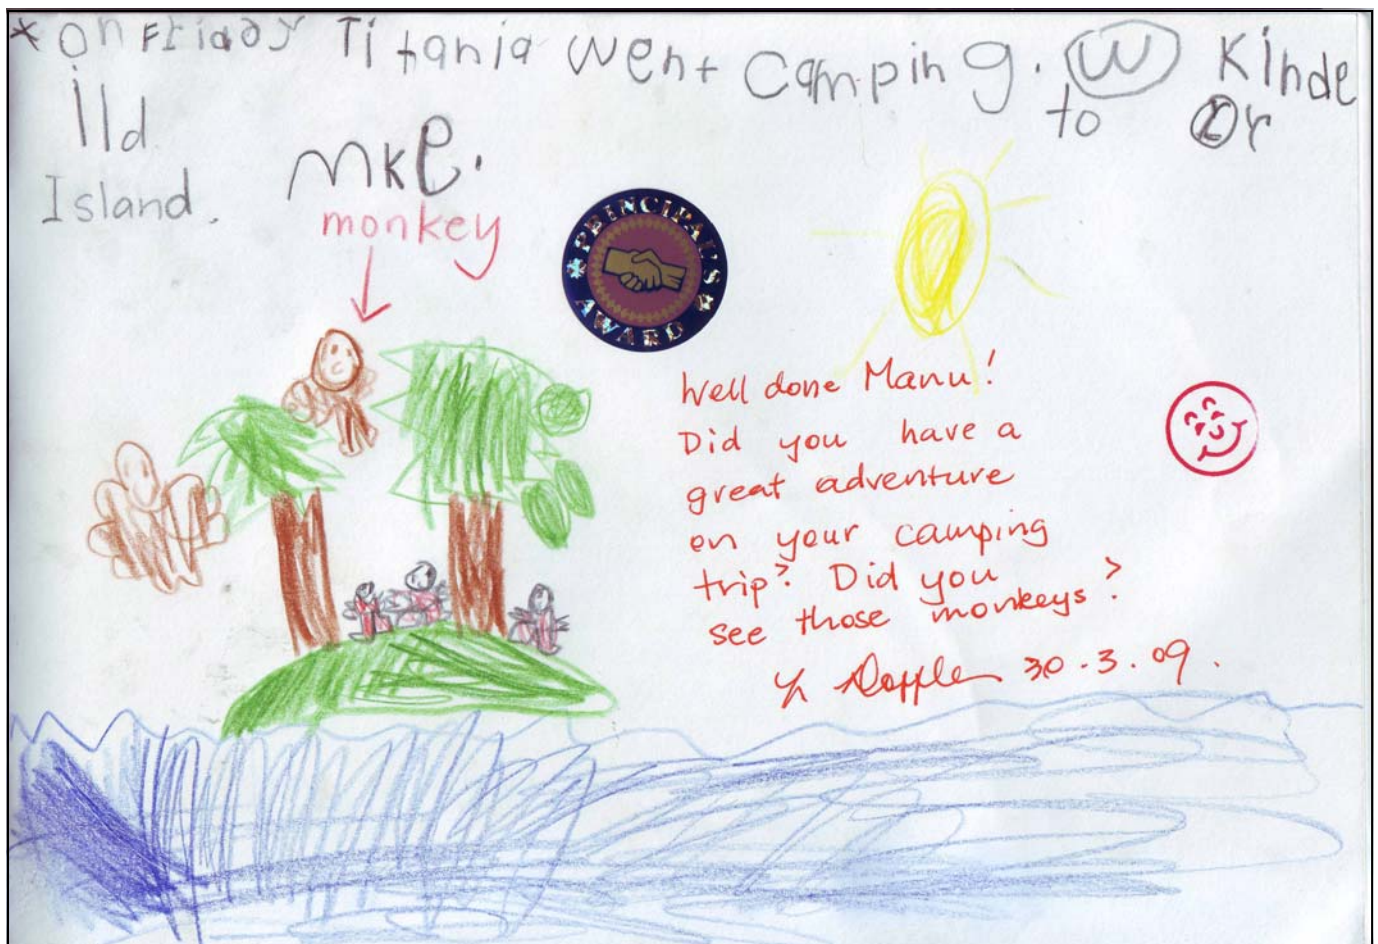 * on Friday Titania went Camping. W Kinde
to r
Ild.
Island.
mke.
monkey
PRINCIPAL'S
AWARD
Well done Manu!
Did you have a
great adventure
on your camping
trip? Did you
see those monkeys?
30.3.09.